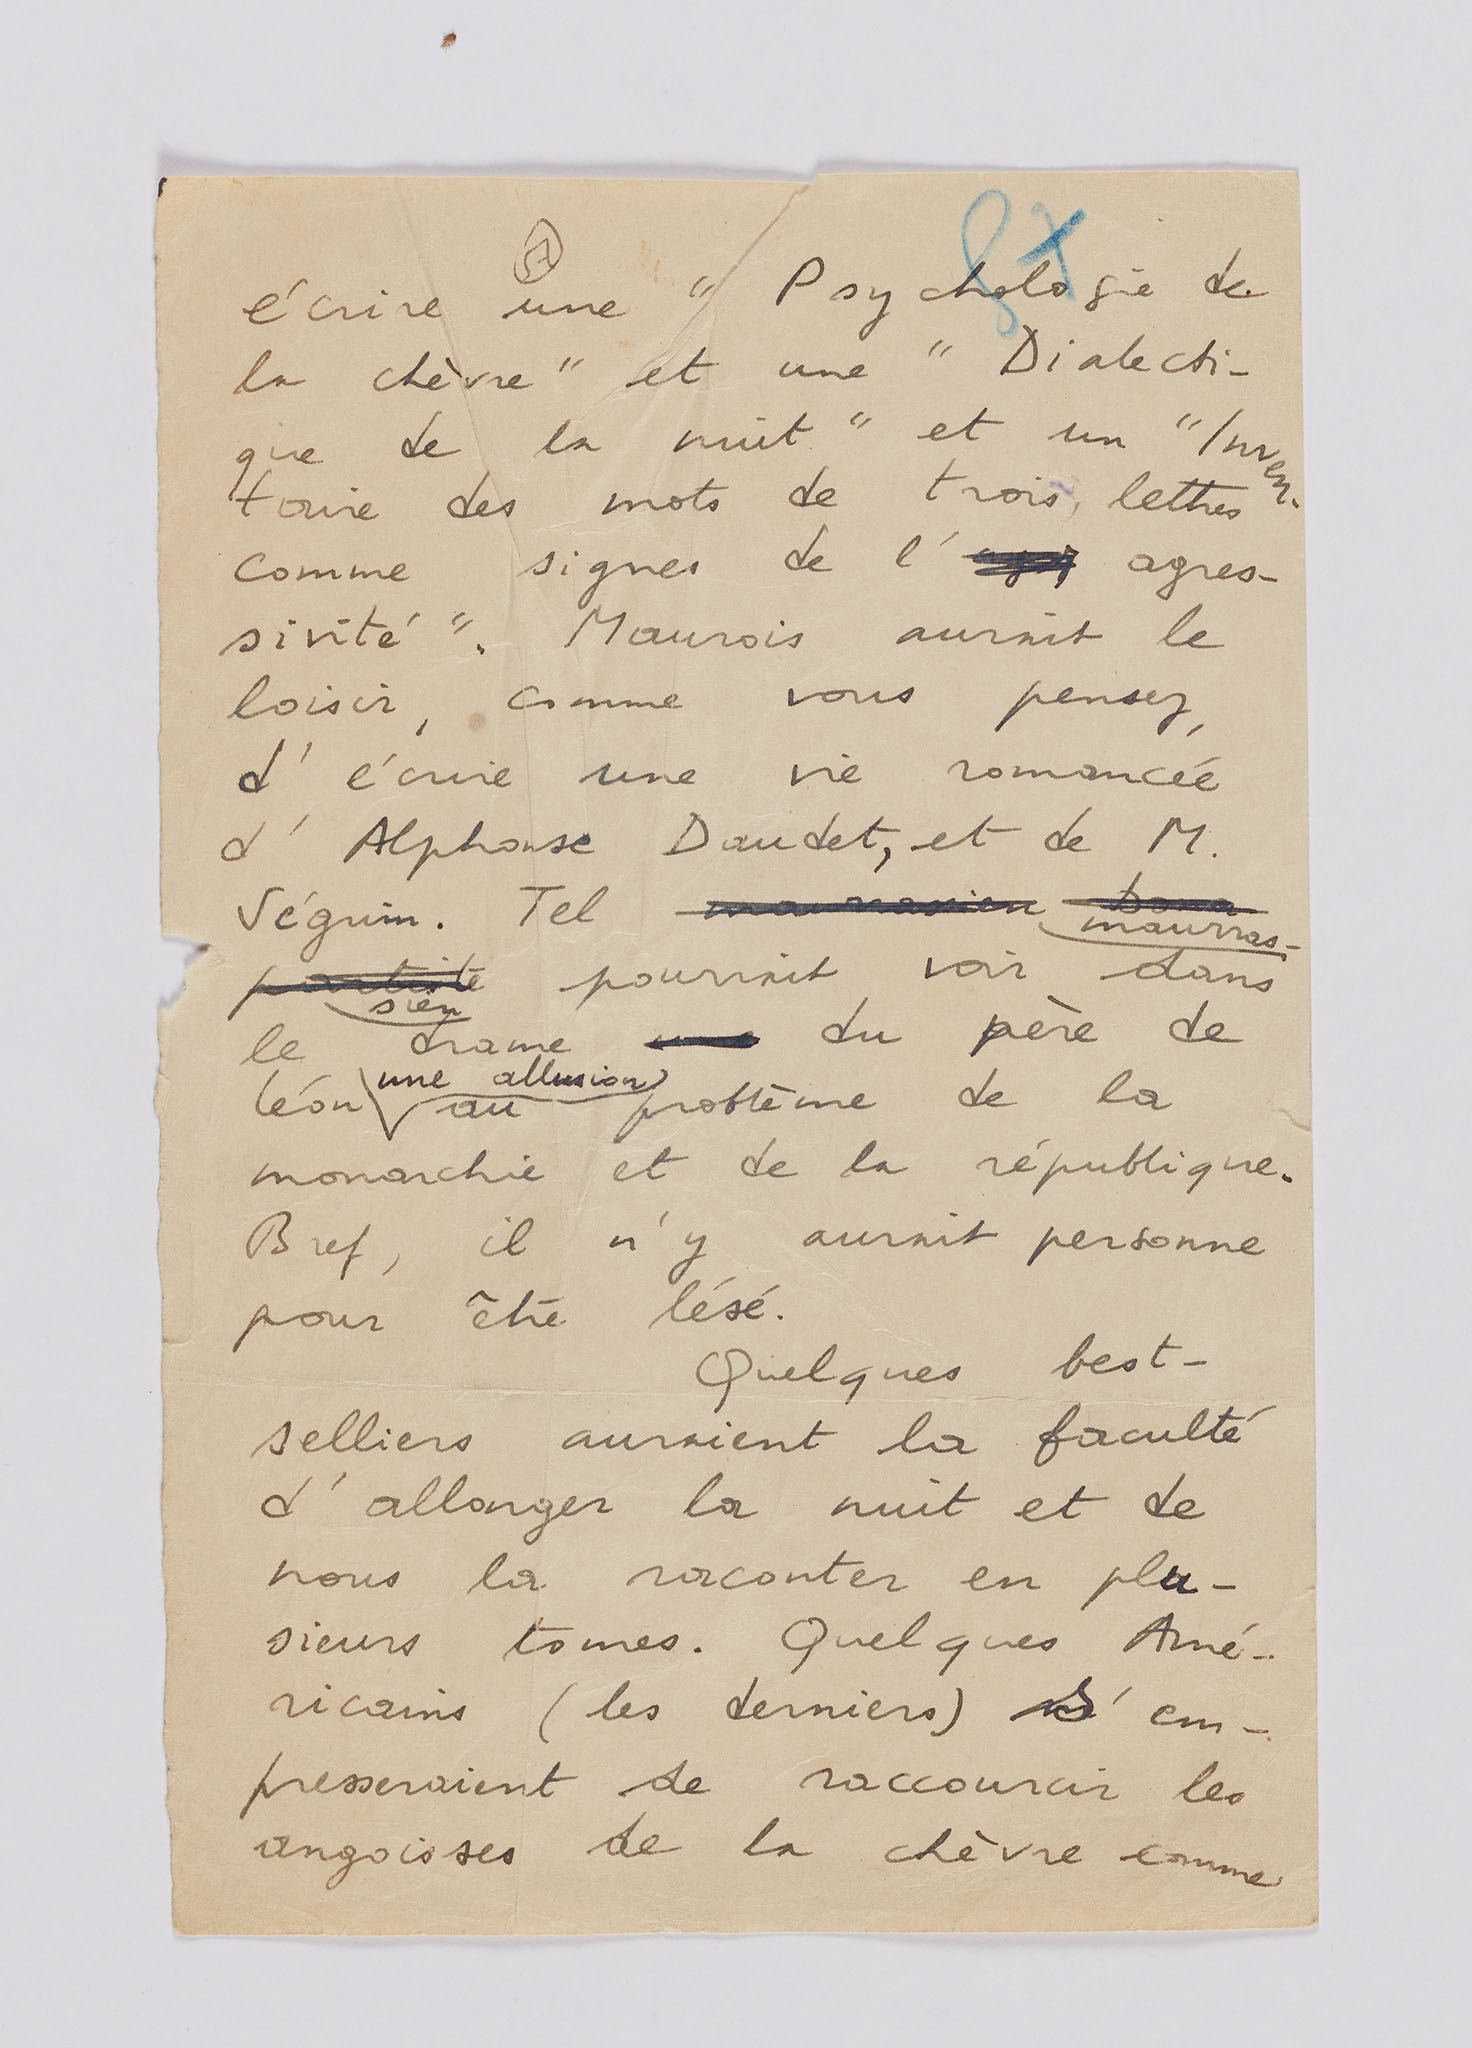 écrire une " Psychologie de
la chèvre " et une " Dialecti-
que de la nuit " et un " Inven-
taire des mots de trois lettres
comme signes de l' agres-
sivité ". Maurois aurait le
loisir, comme vous pensez,
d' écrire une vie romancée
d' Alphonse Daudet, et de M.
Séguin. Tel maurrassien
maurras-
partiste pourrait voir dans
sien
le drame du père de
Léon une allusion au problème de la
monarchie et de la république.
Bref, il n'y aurait personne
pour être lésé.
Quelques best-
selliers auraient la faculté
d' allonger la nuit et de
nous la raconter en plu-
sieurs tomes. Quelques Amé-
ricains (les derniers) s' em-
presseraient de raccourcir les
angoisses de la chèvre comme